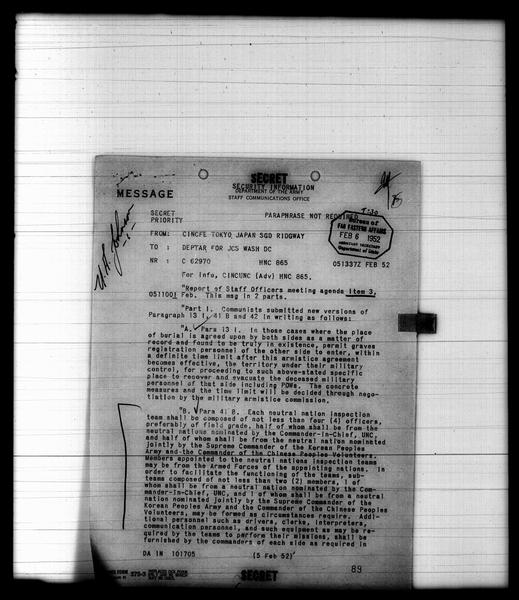 SECRET
SECURITY INFORMATION
DEPARTMENT OF THE ARMY
STAFF COMMUNICATIONS OFFICE
MESSAGE
SECRET
PRIORITY
PARAPHRASE NOT REQUIRED
Bureau of
FAR EASTERN AFFAIRS
FEB 6 1952
Department of State
FROM: CINCFE TOKYO JAPAN SGD RIDGWAY
TO : DEPTAR FOR JCS WASH DC
NR : C 62970 HNC 865 051337Z FEB 52
For Info, CINCUNC (Adv) HNC 865.
"Report of Staff Officers meeting agenda Item 3,
051100I Feb. This msg in 2 parts.
"Part I. Communists submitted new versions of
Paragraph 13 i, 41 B and 42 in writing as follows:
"A. Para 13 i. In those cases where the place
of burial is agreed upon by both sides as a matter of
record and found to be truly in existence, permit graves
registration personnel of the other side to enter, within
a definite time limit after this armistice agreement
becomes effective, the territory under their military
control, for proceeding to such above-stated specific
place to recover and evacuate the deceased military
personnel of that side including POWs. The concrete
measures and the time limit will be decided through nego-
tiation by the military armistice commission.
"B. Para 41 B. Each neutral nation inspection
team shall be composed of not less than four (4) officers,
preferably of field grade, half of whom shall be from the
neutral nations nominated by the Commander-in-Chief, UNC,
and half of whom shall be from the neutral nation nominated
jointly by the Supreme Commander of the Korean Peoples
Army and the Commander of the Chinese Peoples Volunteers.
Members appointed to the neutral nations inspection teams
may be from the Armed Forces of the appointing nations. In
order to facilitate the functioning of the teams, sub-
teams composed of not less than two (2) members, 1 of
whom shall be from a neutral nation nominated by the Com-
mander-in-Chief, UNC, and 1 of whom shall be from a neutral
nation nominated jointly by the Supreme Commander of the
Korean Peoples Army and the Commander of the Chinese Peoples
Volunteers, may be formed as circumstances require. Addi-
tional personnel such as drivers, clerks, interpreters,
communication personnel, and such equipment as may be re-
quired by the teams to perform their missions, shall be
furnished by the commanders of each side as required in
DA IN 101705 (5 Feb 52)
89
SECRET